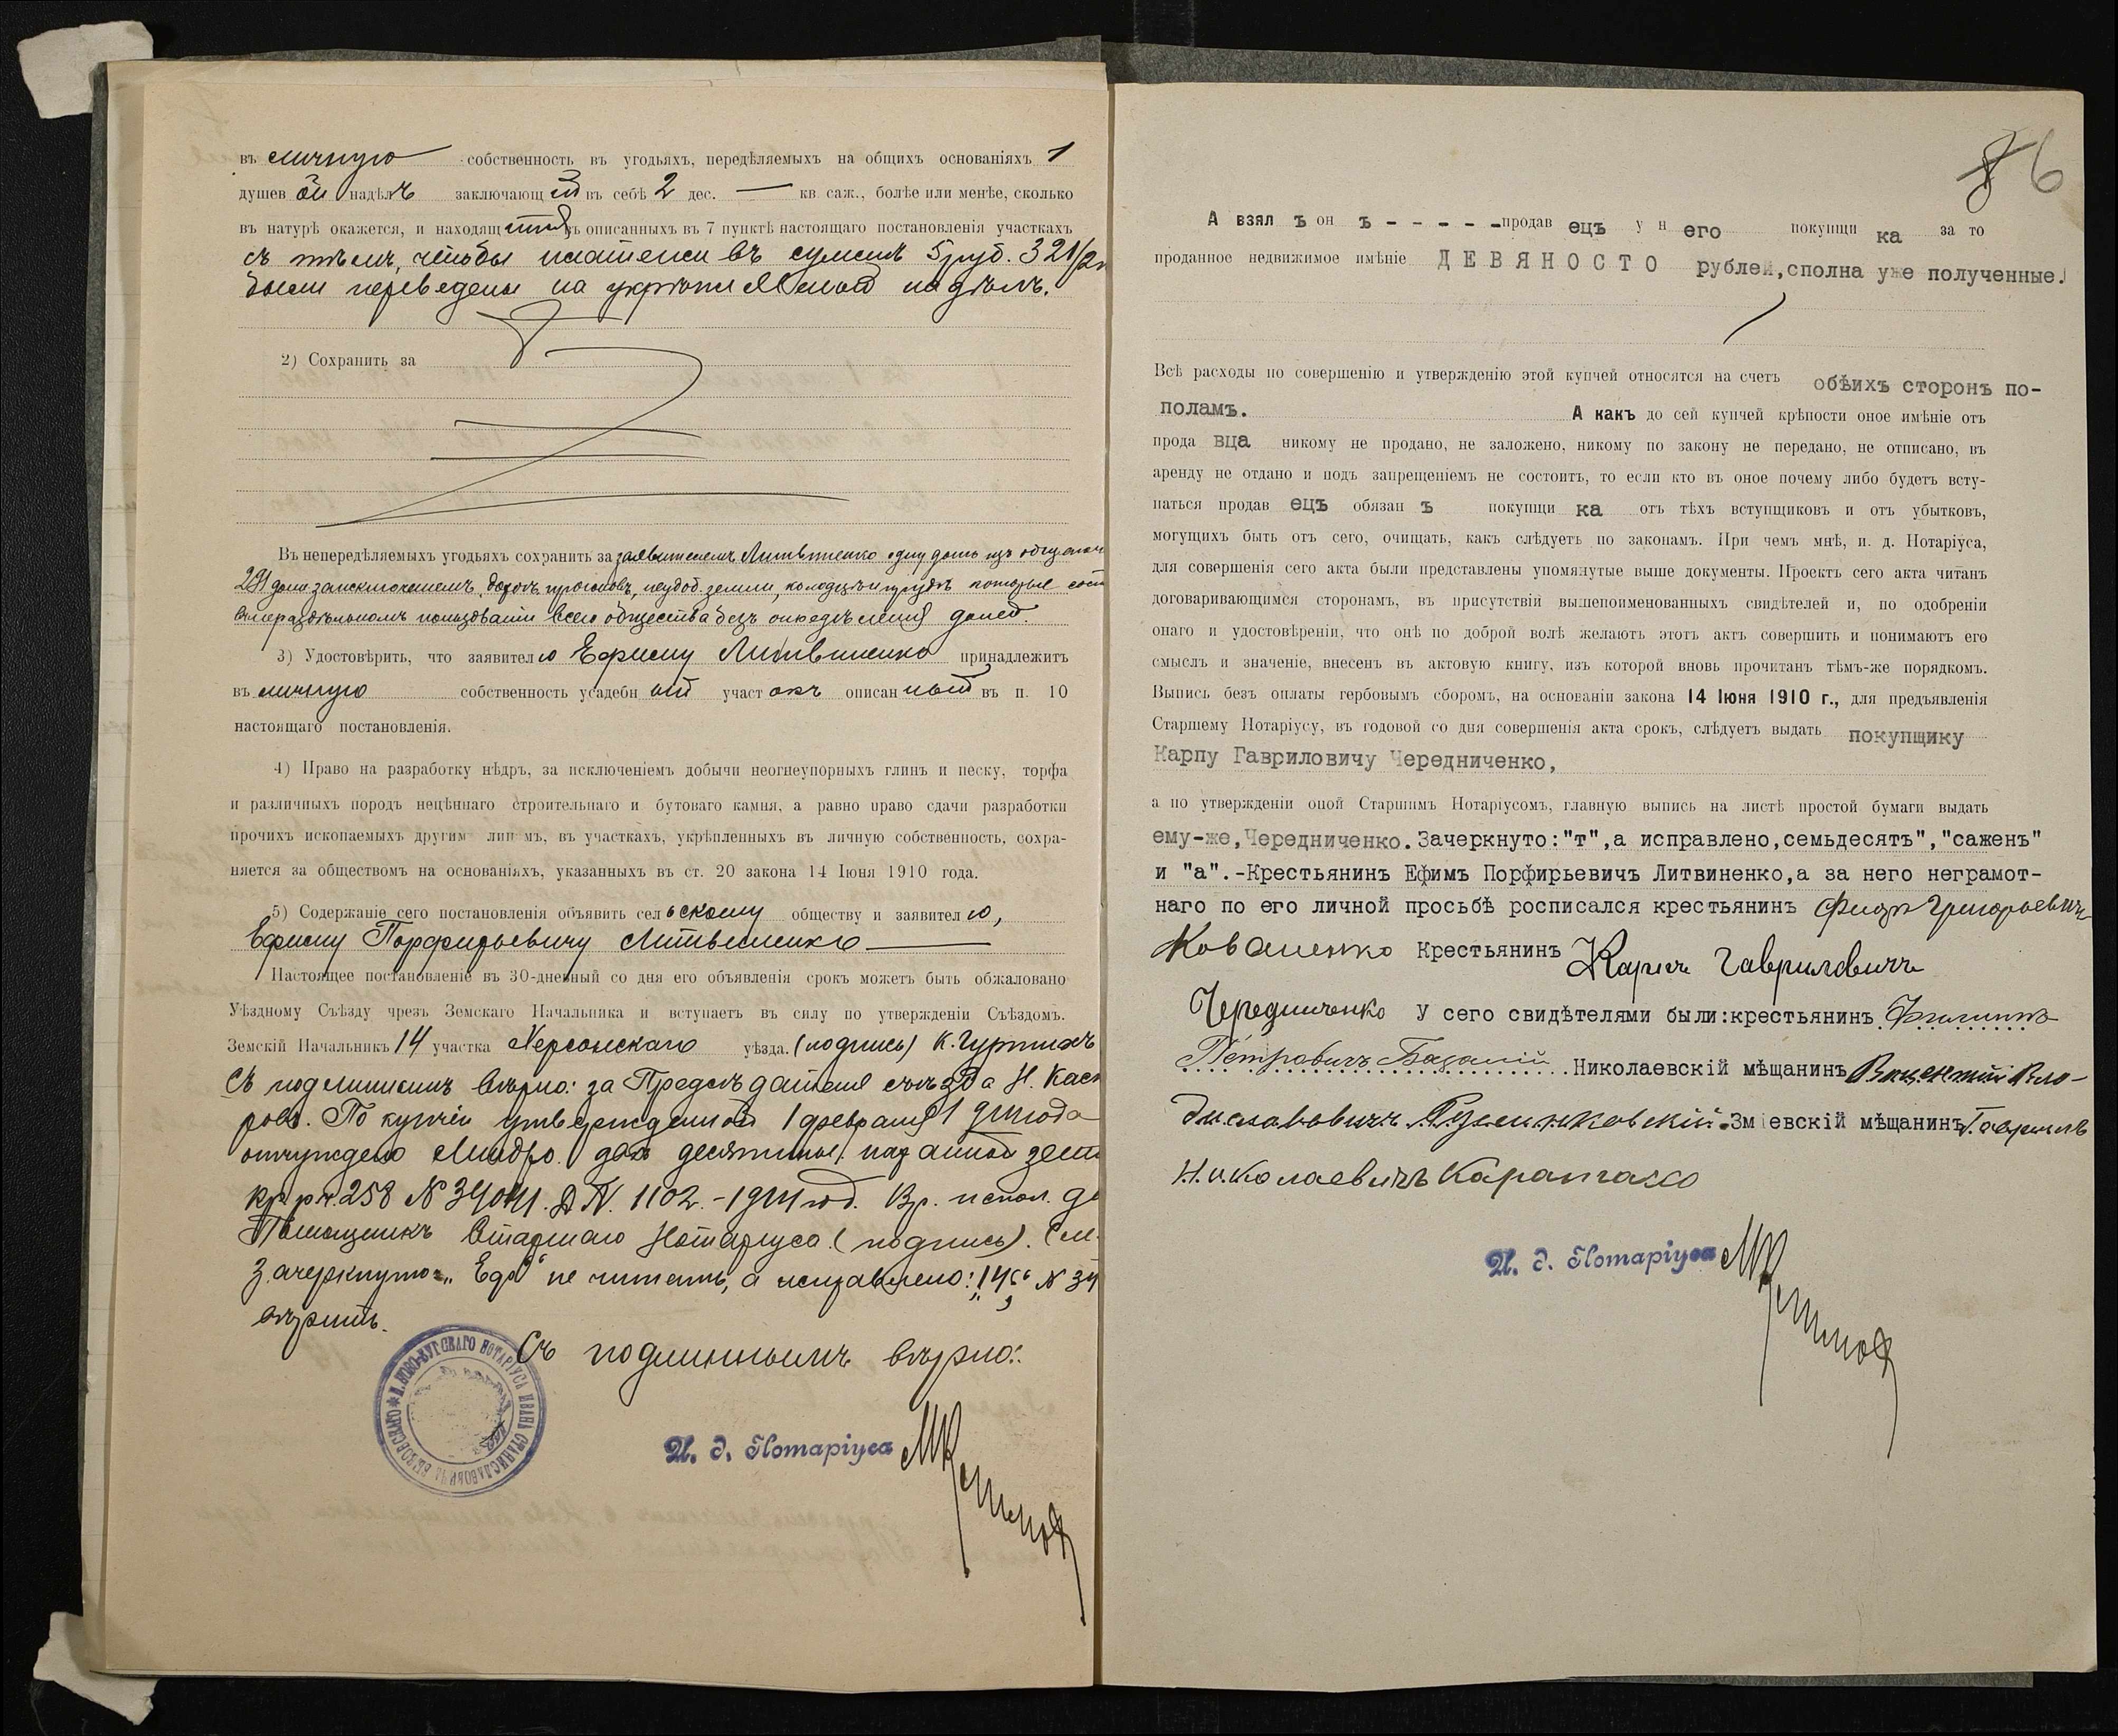 въ личную собственность въ угодьяхъ, передѣляемыхъ на общихъ основаніяхъ 1
душев ой надѣлъ заключающій въ себѣ 2 дес. — кв саж., болѣе или менѣе, сколько
въ натурѣ окажется, и находящійся въ описанныхъ въ 7 пунктѣ настоящаго постановленія участкахъ
съ тѣмъ, чтобы платежи въ суммѣ 5 руб. 32 1/2 к
были переведены на укрѣпляемый надѣлъ.
2) Сохранить за
Въ непередѣляемыхъ угодьяхъ сохранить за заявителемъ Литвиненко одну долю изъ общаго
291 доли за исключеніемъ, дорогъ, прогоновъ, неудоб. земли, колодцевъ и прудовъ которые сост
въ нераздѣльномъ пользованіи всего общества безъ опредѣленія долей.
3) Удостовѣрить, что заявителю Ефиму Литвиненко принадлежитъ
въ личную собственность усадебн ый участ окъ описан ный въ п. 10
настоящаго постановленія.
4) Право на разработку нѣдръ, за исключеніемъ добычи неогнеупорныхъ глинъ и песку, торфа
и различныхъ породъ нецѣннаго строительнаго и бутоваго камня, а равно право сдачи разработки
прочихъ ископаемыхъ другим лиц мъ, въ участкахъ, укрѣпленныхъ въ личную собственность, сохра-
няется за обществомъ на основаніяхъ, указанныхъ въ ст. 20 закона 14 Іюня 1910 года.
5) Содержаніе сего постановленія объявить сельскому обществу и заявителю,
Ефиму Порфирьевичу Литвиненко
Настоящее постановленіе въ 30-дневный со дня его объявленія срокъ можетъ быть обжаловано
Уѣздному Съѣзду чрезъ Земскаго Начальника и вступаетъ въ силу по утвержденіи Съѣздомъ.
Земскій Начальникъ 14 участка Херсонскаго уѣзда. (подпись) К.
Съ подлиннымъ вѣрно: за Предсѣдателя съѣзда Н.
По купчей утвержденной 1 февраля
отчуждено двѣ десятины
кр. р. 258 № Д № 1102. - 1911 год. Вр. испол. д
Помощникъ Старшаго Нотаріуса (подпись).
Зачеркнуто: не читать, а исправлено: "14" № 34
вѣрить.
Съ подлиннымъ вѣрно:
И. д. Нотаріуса
НОВО-БУГСКАГО НОТАРІУСА ИВАНА СТАНИСЛАВОВИЧА
86
А взял ъ он ъ - - - - - продав ецъ у н его покупщи ка за то
проданное недвижимое имѣніе ДЕВЯНОСТО рублей, сполна уже полученные.
Всѣ расходы по совершенію и утвержденію этой купчей относятся на счетъ обѣихъ сторонъ по-
поламъ. А какъ до сей купчей крѣпости оное имѣніе отъ
прода вца никому не продано, не заложено, никому по закону не передано, не отписано, въ
аренду не отдано и подъ запрещеніемъ не состоитъ, то если кто въ оное почему либо будетъ всту-
паться продав ецъ обязан ъ покупщи ка отъ тѣхъ вступщиковъ и отъ убытковъ,
могущихъ быть отъ сего, очищать, какъ слѣдуетъ по законамъ. При чемъ мнѣ, и. д. Нотаріуса,
для совершенія сего акта были представлены упомянутые выше документы. Проектъ сего акта читанъ
договаривающимся сторонамъ, въ присутствій вышепоименованныхъ свидѣтелей и, по одобреніи
онаго и удостовѣреніи, что онѣ по доброй волѣ желаютъ этотъ актъ совершить и понимаютъ его
смыслъ и значеніе, внесенъ въ актовую книгу, изъ которой вновь прочитанъ тѣмъ-же порядкомъ.
Выпись безъ оплаты гербовымъ сборомъ, на основаніи закона 14 Іюня 1910 г., для предъявленія
Старшему Нотаріусу, въ годовой со дня совершенія акта срокъ, слѣдуетъ выдать покупщику
Карпу Гавриловичу Чередниченко,
а по утвержденіи оной Старшимъ Нотаріусомъ, главную выпись на листѣ простой бумаги выдать
ему-же, Чередниченко. Зачеркнуто: "т", а исправлено, семьдесятъ", "саженъ"
и "а".-Крестьянинъ Ефимъ Порфирьевичъ Литвиненко, а за него неграмот-
наго по его личной просьбѣ росписался крестьянинъ Григорьевичъ
Коваленко Крестьянинъ Карпъ Гавриловичъ
Чередниченко У сего свидѣтелями были: крестьянинъ Филиппъ
Петровичъ Николаевскій мѣщанинъ Викентій Вла-
диславовичъ Зміевскій мѣщанинъ Гавріилъ
Николаевичъ
И. д. Нотаріуса